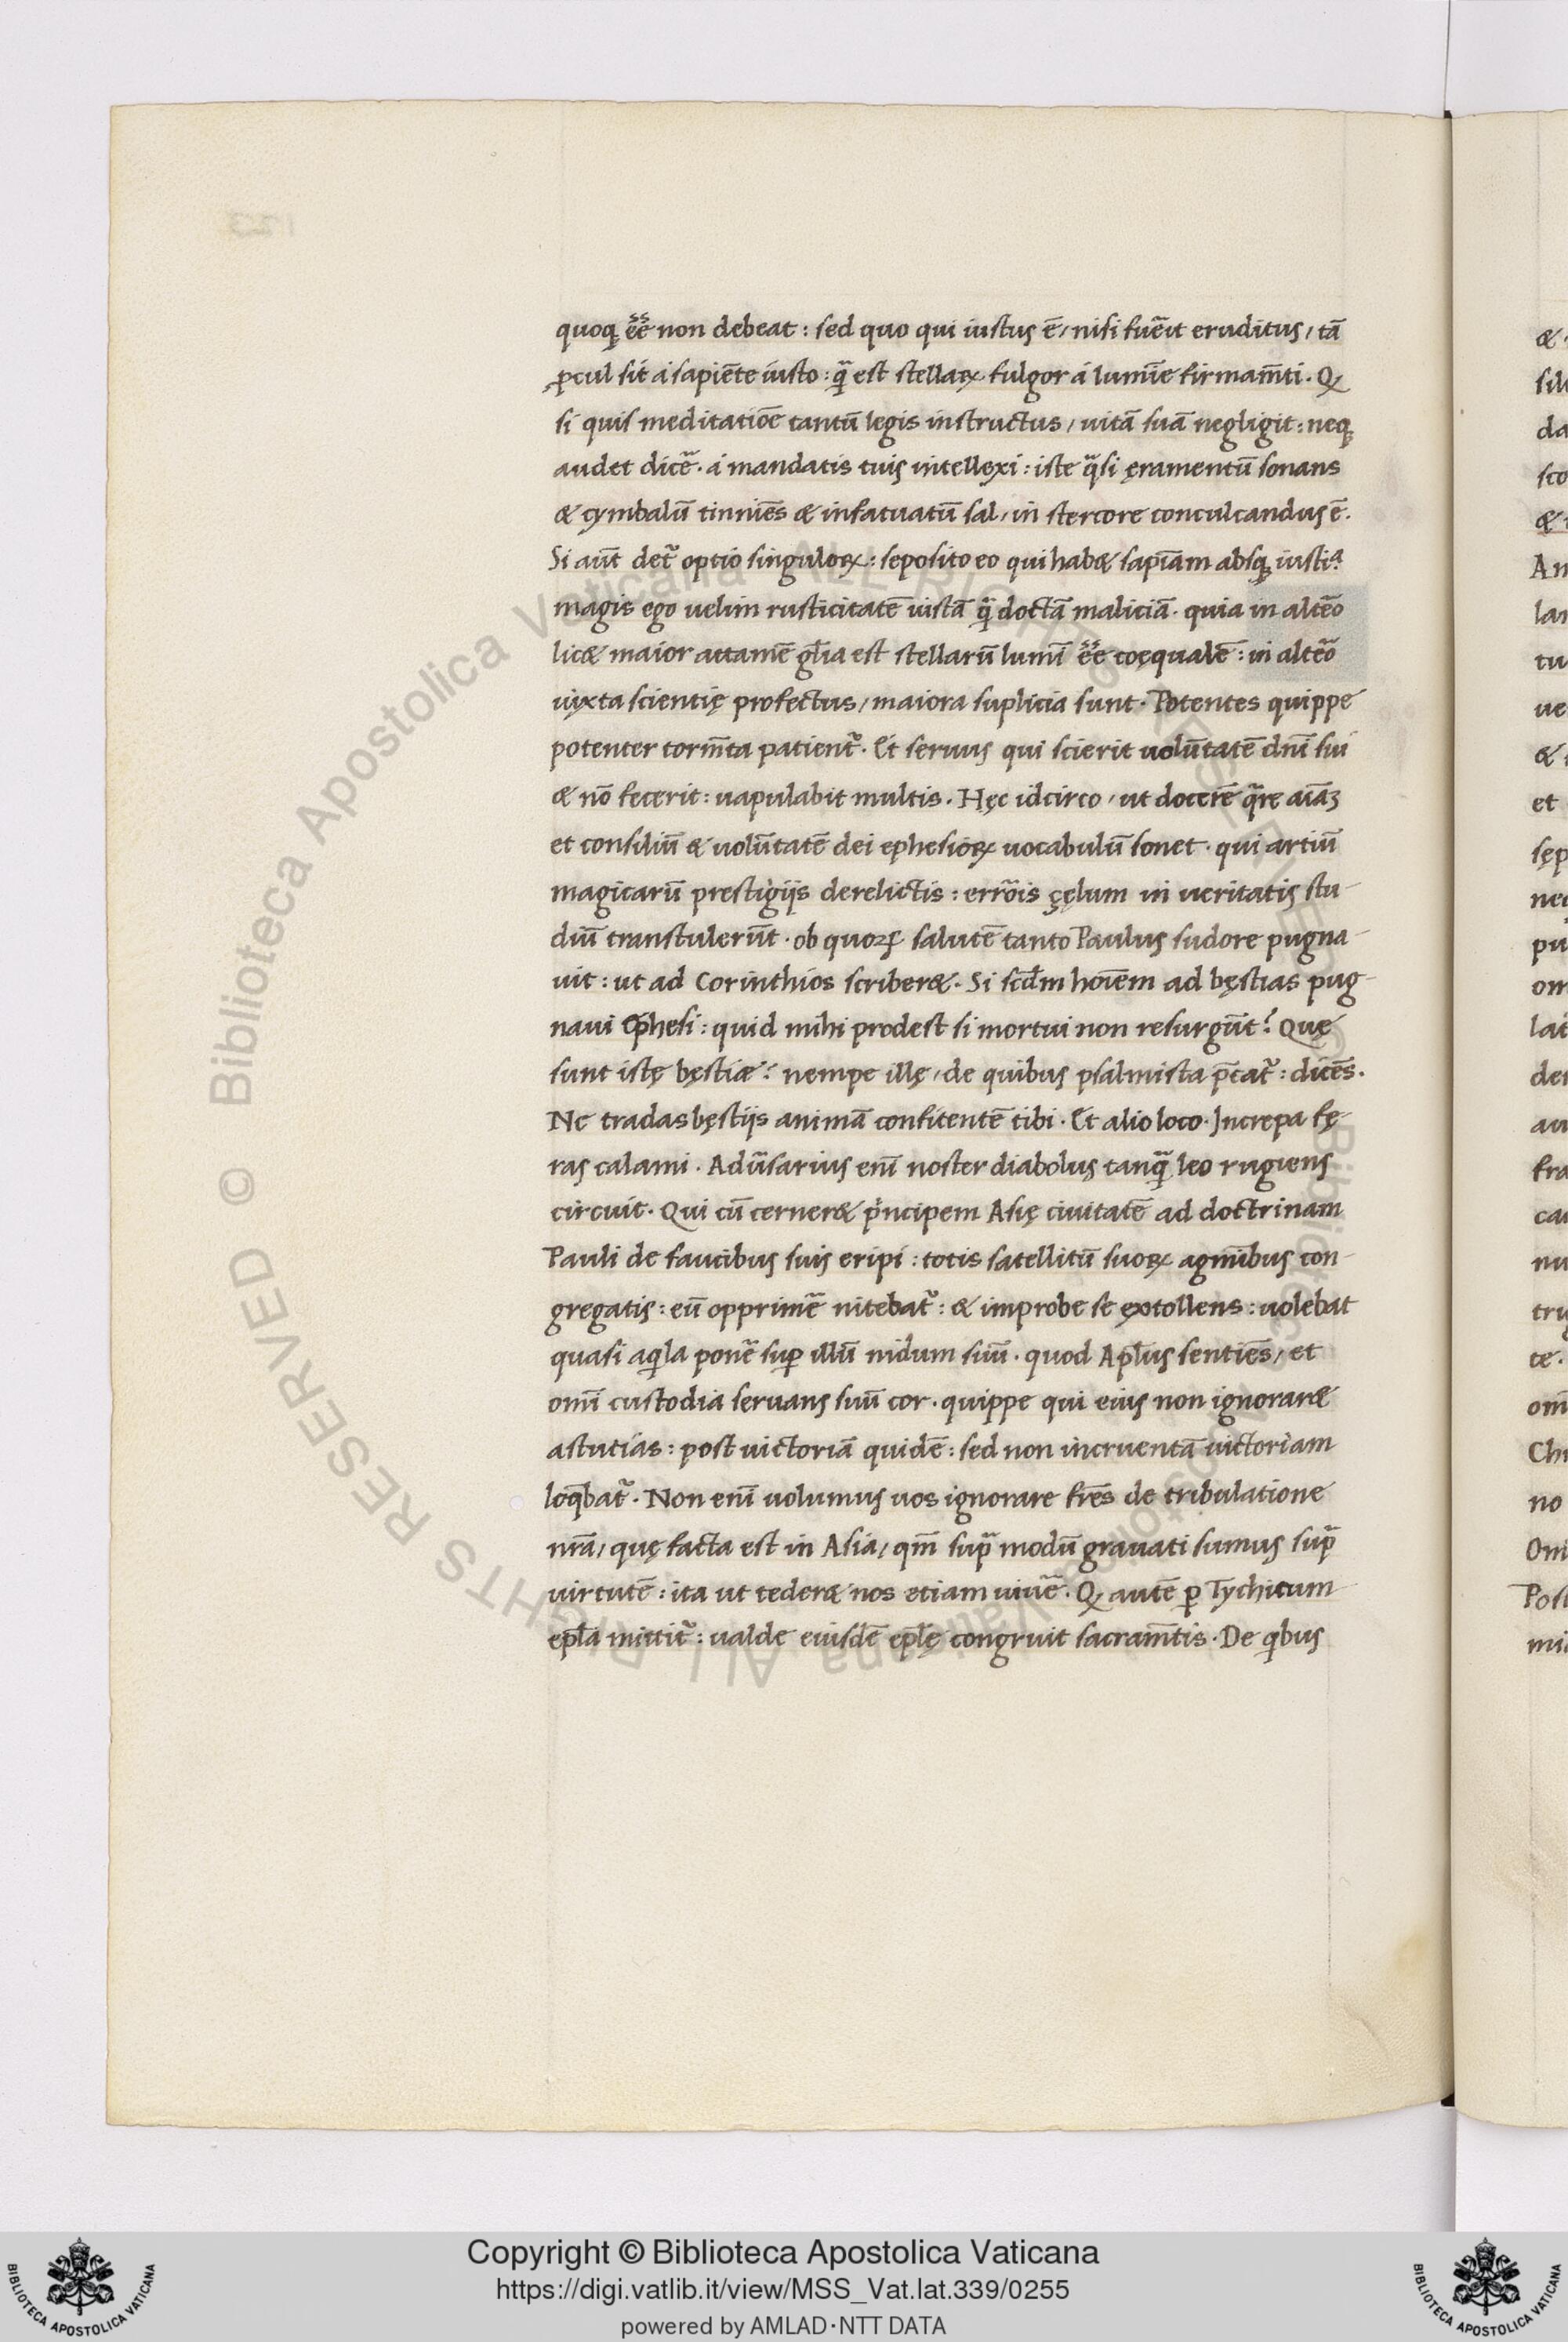 quoq; e͞e͞ non debeat : sed quo qui iustus ē / nisi fuēit eruditus / tā
ꝓcul sit á sapiēte iusto : q̄ est stellaꝝ fulgor á lumīe firmam̄ti . Qꝫ
si quis meditatiōe tantū legis instructus / uitā suā negligit : neq;
audet dicē . á mandatis tuis intellexi : iste q̄si ęramentū sonans
& cymbalū tinniēs & infatuatū sal / in stercore conculcandus ē .
Si aūt det᷑ optio singuloꝝ : seposito eo qui hab& sapīam absq; iustiᵃ .
magis ego uelim rusticitatē iustā q̄ doctā maliciā . quia in altēo
lic& maior attamē gl̄ia est stellarū lumī e͞e͞ coęqualē : in altēo
iuxta scientię profectus / maiora suplicia sunt . Potentes quippe
potenter torm̄ta patient᷑ . Et seruus qui scierit uolūtatē dn̄i sui
& nō fecerit : uapulabit multis . Hęc idcirco / ut docerē q̄re aīaꝫ
et consiliū & uolūtatē dei ephesioꝝ uocabulū sonet . qui artiū
magicarū prestigijs derelictis : errōis çęlum in ueritatis stu-
diū transtulerūt . ob quoꝝ salutē tanto Paulus sudore pugna-
uit : ut ad Corinthios scriber& . Si scd̄m hoīem ad bęstias pug-
naui Ephesi : quid mihi prodest si mortui non resurgūt ? Quę
sunt istę bęstiæ ? nempe illę / de quibus psalmista p̄cat᷑ : dicēs .
Ne tradas bęstijs animā confitentē tibi . Et alio loco . Increpa fę-
ras calami . Adūsarius enī noster diabolus tanq̄ leo rugiens
circuit . Qui cū cerner& pⁱncipem Asię ciuitatē ad doctrinam
Pauli de faucibus suis eripi : totis satellitū suoꝝ agmībus con-
gregatis : eū opprimē nitebat᷑ : & improbe se extollens : uolebat
quasi aqⁱla ponē suꝑ illū nidum suū . quod Apl̄us sentiēs / et
omī custodia seruans suū cor . quippe qui eius non ignorar&
astutias : post uictoriā quidē : sed non incruentā uictoriam
loq̄bat᷑ . Non enī uolumus uos ignorare fr̄es de tribulatione
nr̄a / quę facta est in Asia / qm̄ sup̄ modū grauati sumus sup̄
uirtutē : ita ut teder& nos etiam uiuē . Qꝫ autē ꝑ Tychicum
epl̄a mittit᷑ : ualde eiusdē epl̄ę congruit sacram̄tis . De qⁱbus
Biblioteca Apostolica Vaticana ALL RIGHTS RESERVED ©
Copyright © Biblioteca Apostolica Vaticana
https://digi.vatlib.it/view/MSS_Vat.lat.339/0255
powered by AMLAD·NTT DATA
BIBLIOTECA APOSTOLICA VATICANA
BIBLIOTECA APOSTOLICA VATICANA